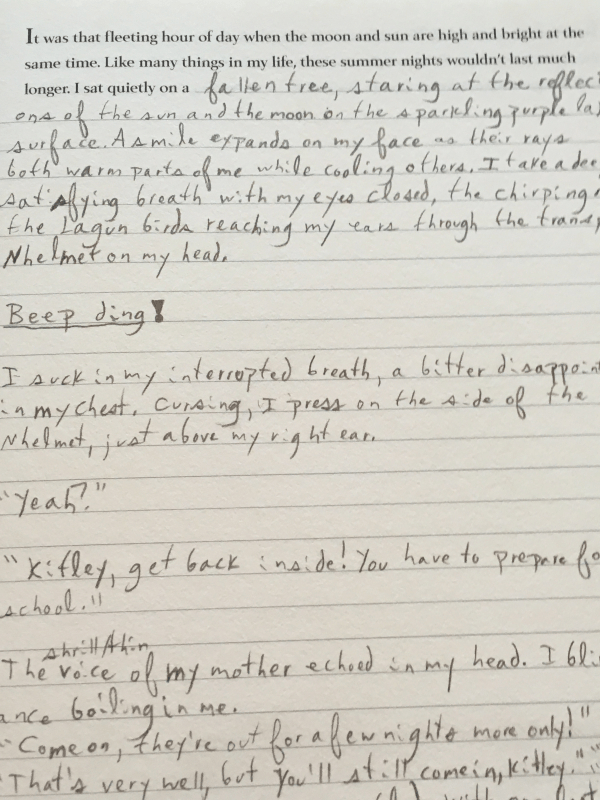 It was that fleeting hour of day when the moon and sun are high and bright at the
same time. Like many things in my life, these summer nights wouldn't last much
longer. I sat quietly on a fallen tree, staring at the reflec
ons of the sun and the moon on the sparkling purple la
surface. A smile expands on my face as their rays
both warm parts of me while cooling others. I take a dee
satisfying breath with my eyes closed, the chirping
the Lagun birds reaching my ears through the trans
Nhelmet on my head.
Beep ding!
I suck in my interrupted breath, a bitter disappoint
in my chest. Cursing, I press on the side of the
Nhelmet, just above my right ear.
"Yeah?"
"Kitley, get back inside! You have to prepare fo
school."
shrill
The voice of my mother echoed in my head. I bli
ance boiling in me.
"Come on, they're out for a few nights more only!"
"That's very well, but you'll still come in, Kitley."